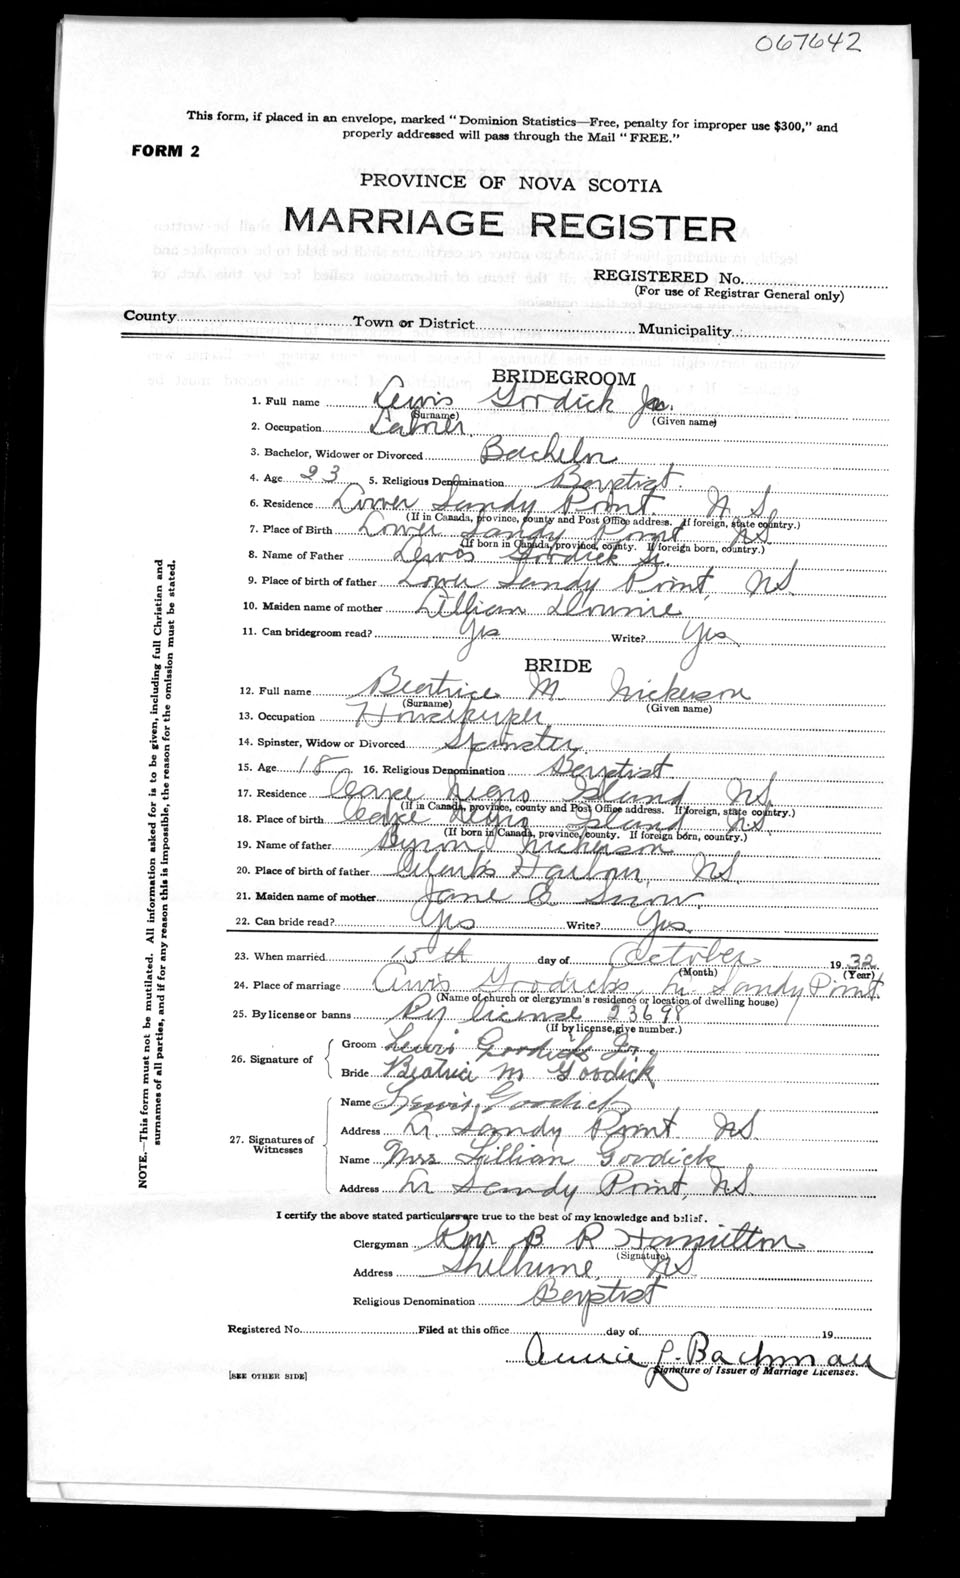 067642
This form, if placed in an envelope, marked "Dominion Statistics—Free, penalty for improper use $300," and
properly addressed will pass through the Mail "FREE."
FORM 2
PROVINCE OF NOVA SCOTIA
MARRIAGE REGISTER
REGISTERED No.
(For use of Registrar General only)
County Town or District Municipality
BRIDEGROOM
1. Full name Lewis Goodick Jr.
(Surname) (Given name)
2. Occupation Laborer
3. Bachelor, Widower or Divorced Bachelor
4. Age 23 5. Religious Denomination Baptist
6. Residence Lower Sandy Point. N.S.
(If in Canada, province, county and Post Office address. If foreign, state country.)
7. Place of Birth Lower Sandy Point NS
(If born in Canada, province, county. If foreign born, country.)
8. Name of Father Lewis Goodick Sr.
9. Place of birth of father Lower Sandy Point, NS.
10. Maiden name of mother Lillian Downie
11. Can bridegroom read? Yes Write? Yes
BRIDE
12. Full name Beatrice M Nickerson
(Surname) (Given name)
13. Occupation Housekeeper
14. Spinster, Widow or Divorced Spinster
15. Age 18 16. Religious Denomination Baptist
17. Residence Cape Negro Island NS
(If in Canada, province, county and Post Office address. If foreign, state country.)
18. Place of birth Cape Negro Island NS
(If born in Canada, province, county. If foreign born, country.)
19. Name of father Byron Nickerson
20. Place of birth of father Clarks Harbor, NS
21. Maiden name of mother Jane E Snow
22. Can bride read? Yes Write? Yes
23. When married 15th day of October 1932
(Month) (Year)
24. Place of marriage Goodicks, Lr Sandy Point.
(Name of church or clergyman's residence or location of dwelling house)
25. By license or banns By license 23698
(If by license, give number.)
26. Signature of Groom Lewis Goodick Jr.
Bride Beatrice M Goodick
27. Signatures of Witnesses Name Lewis Goodick
Address Lr. Sandy Point NS.
Name Mrs Lillian Goodick
Address Lr Sandy Point, NS.
I certify the above stated particulars are true to the best of my knowledge and belief.
Clergyman Rev B R Hamilton
(Signature)
Address Shelburne, NS
Religious Denomination Baptist
Registered No. Filed at this office day of 19
Annie L. Bachman
Signature of Issuer of Marriage Licenses.
[SEE OTHER SIDE]
NOTE.—This form must not be mutilated. All information asked for is to be given, including full Christian and
surnames of all parties, and if for any reason this is impossible, the reason for the omission must be stated.